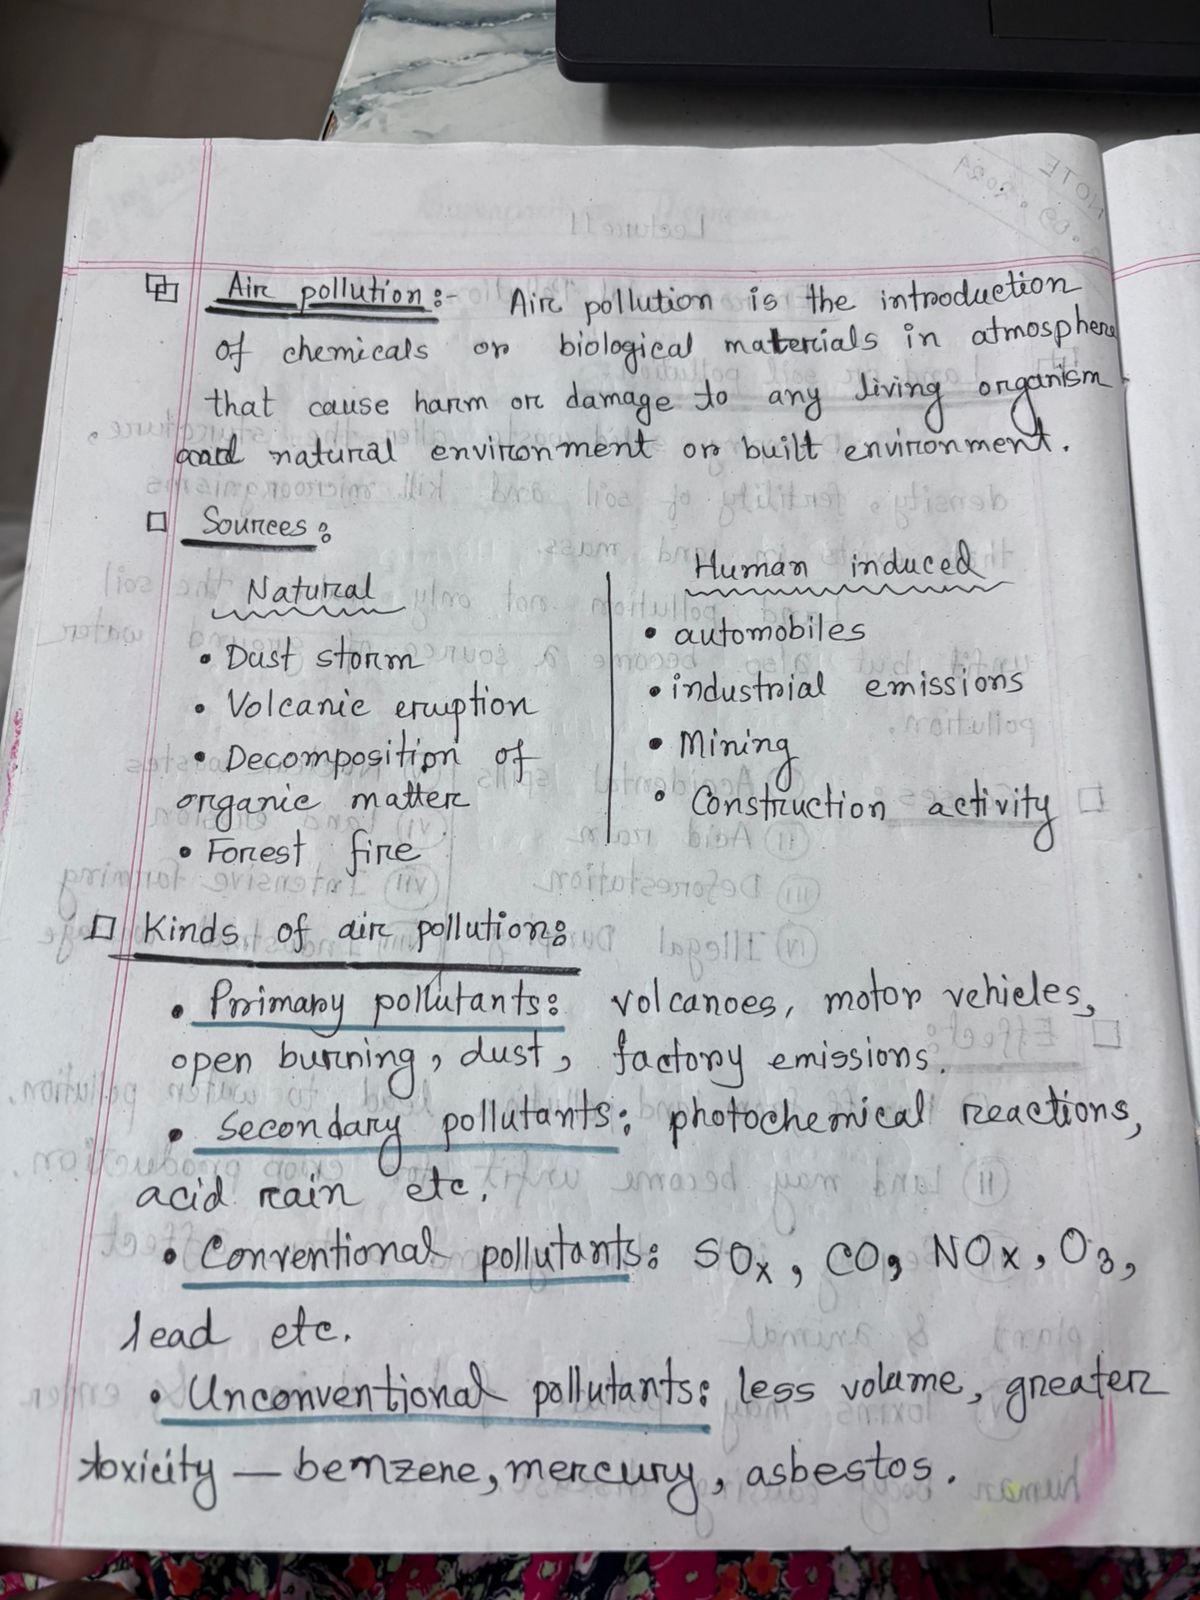 Air pollution :- Air pollution is the introduction
of chemicals or biological materials in atmosphere
that cause harm or damage to any living organism
and natural environment or built environment.
Sources :
Natural
• Dust storm
• Volcanic eruption
• Decomposition of
organic matter
• Forest fire
Human induced
• automobiles
• industrial emissions
• Mining
• Construction activity
Kinds of air pollution :
• Primary pollutants : volcanoes, motor vehicles,
open burning, dust, factory emissions.
• Secondary pollutants : photochemical reactions,
acid rain etc.
• Conventional pollutants : SOx, CO, NOx, O3,
lead etc.
• Unconventional pollutants : less volume, greater
toxicity — benzene, mercury, asbestos.